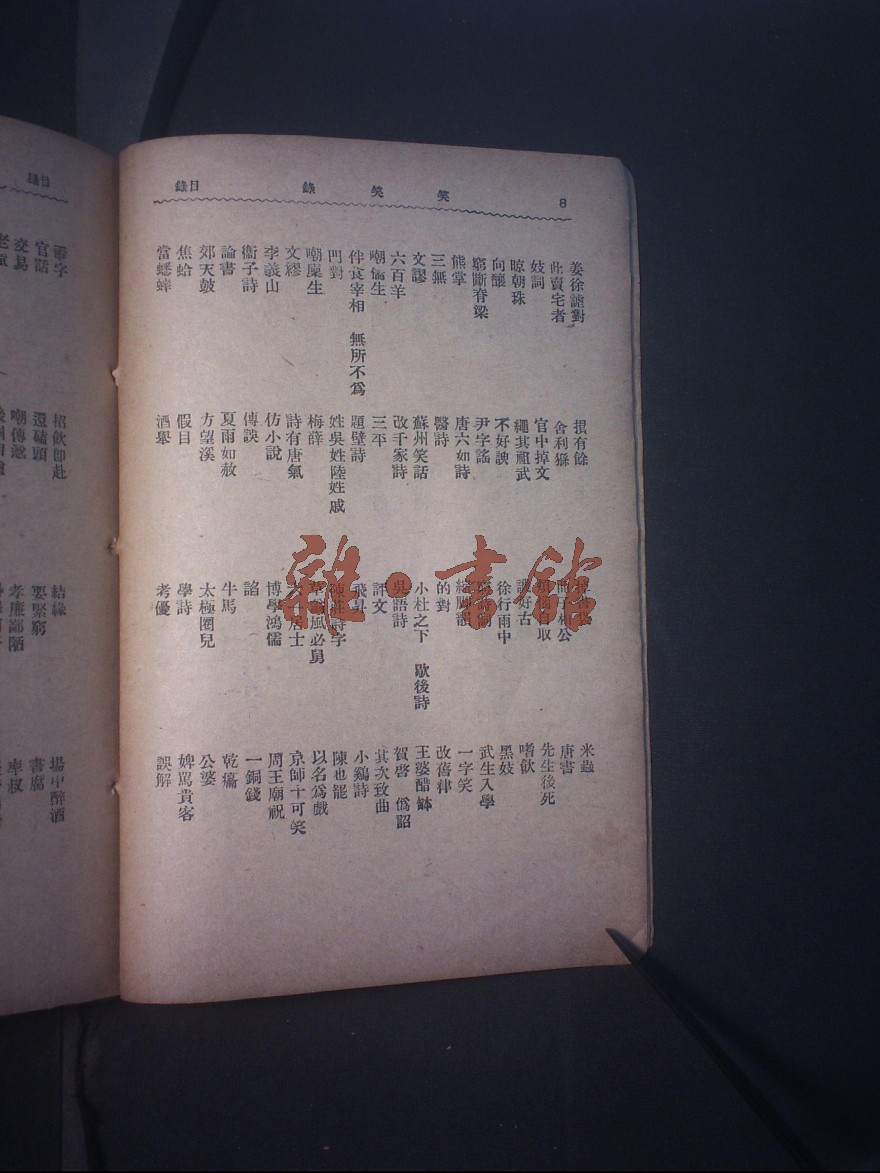 8
笑笑錄
目錄
姜徐謔對
此賣宅者
妓詞
晾朝珠
向釀
窮斷脊梁
熊掌
三無
文謬
六百羊
嘲傭生
伴食宰相　無所不爲
門對
嘲廩生
文繆
李義山
衞子詩
論書
郊天鼓
焦蛤
當蟋蟀
拫有餘
舍利猻
官中掉文
繩其祖武
不好諛
尹字謠
唐六如詩
醫詩
蘇州笑話
改千家詩
三平
題壁詩
姓吳姓陸姓戚
梅薛
詩有唐氣
仿小說
傳誤
夏雨如赦
方望溪
假目
酒舉
徐行雨中
的對
小杜之下　歇後詩
吳語詩
評文
飛昇
博學鴻儒
諂
牛馬
太極圈兒
學詩
考優
米蟲
唐書
先生後死
嗜飲
黑妓
武生入學
一字笑
改舊律
王婆醋缽
賀啓　僞詔
其次致曲
小鷄詩
陳也罷
以名爲戲
京師十可笑
周王廟祝
一銅錢
乾㿜
公婆
婢罵貴客
誤解
目錄
官話
交易
招飲卽赴
還磕頭
結緣
要緊窮
孝廉鄙陋
書腐
雜·書館